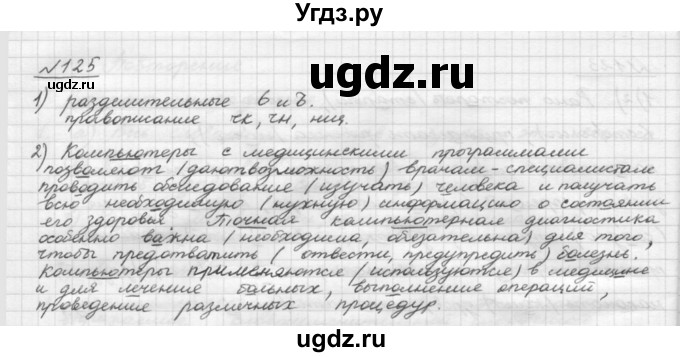 Угдз.ру
№125
1) разделительные ь и ъ.
правописание чк, чн, нщ.
ugdz.ru
2) Компьютеры с медицинскими программами
позволяют (дают возможность) врачам-специалистам
проводить обследование (изучать) человека и получать
всю необходимую (нужную) информацию о состоянии
его здоровья. Точная компьютерная диагностика
особенно важна (необходима, обязательна) для того,
чтобы предотвратить (отвести, предупредить) болезнь.
Компьютеры применяются (используются) в медицине
и для лечения больных, выполнение операций,
проведение различных процедур.
ugdz.ru
ugdz.ru
ugdz.ru